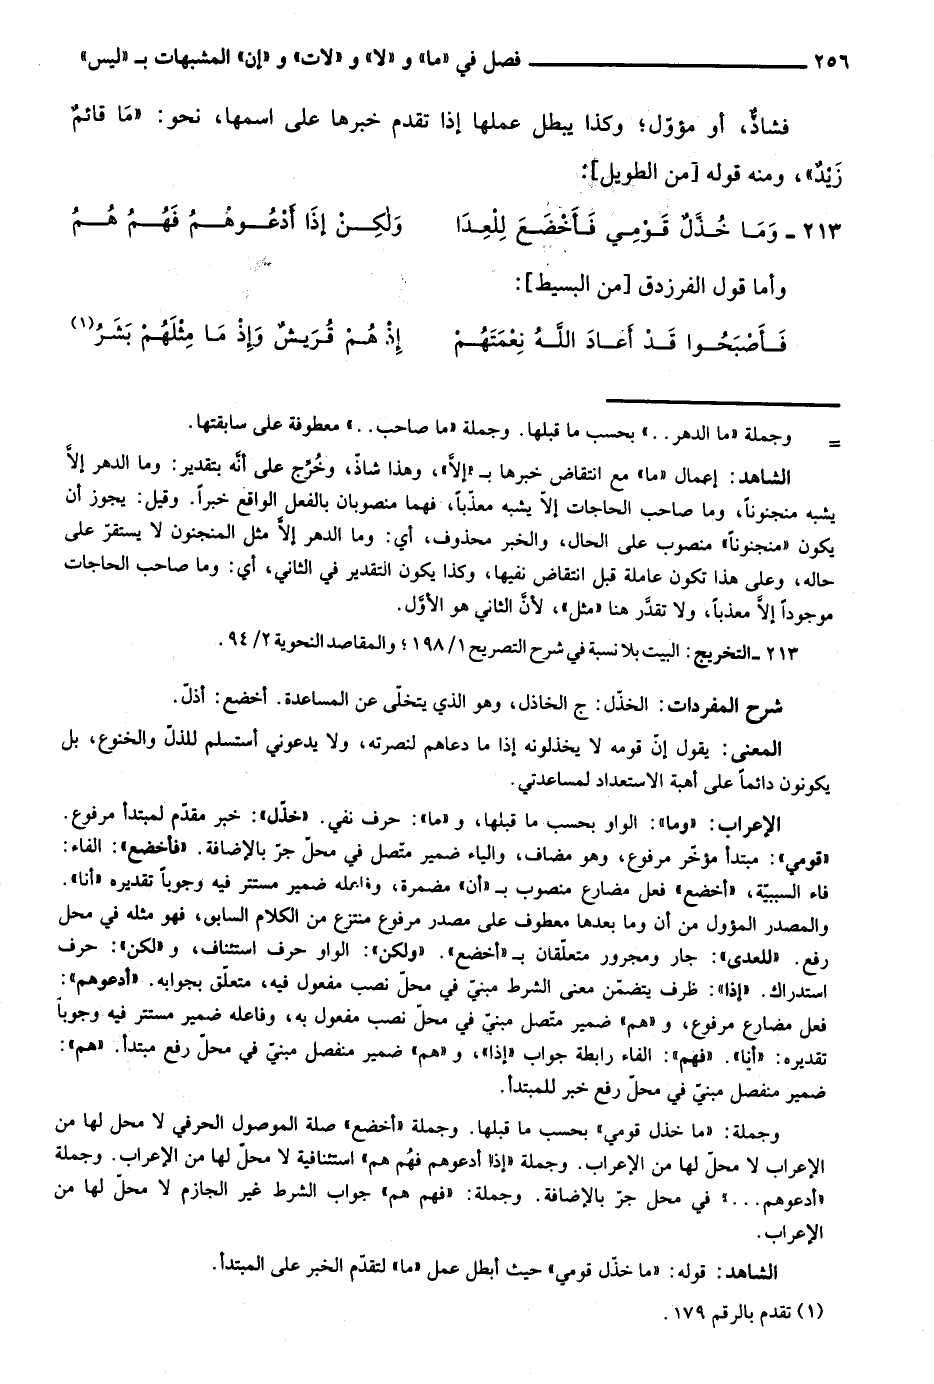 ٢٥٦ ــــــــ فصل في «ما» و «لا» و «لات» و «إن» المشبهات بـ «ليس»
فشاذٌّ، أو مؤوّل؛ وكذا يبطل عملها إذا تقدم خبرها على اسمها، نحو: «مَا قائمٌ
زَيْدٌ»، ومنه قوله [من الطويل]:
٢١٣ ـ وَمَـا خُـذَّلٌ قَوْمِي فَـأَخْضَـعَ لِلْعِدَا وَلٰكِـنْ إذَا أَدْعُـوهُـمُ فَهُـمُ هُـمُ
وأما قول الفرزدق [من البسيط]:
فَـأَصْبَحُـوا قَـدْ أَعَـادَ اللَّـهُ نِعْمَتَهُـمْ إِذْ هُـمْ قُرَيشٌ وَإِذْ مَا مِثْلَهُمْ بَشَرُ(١)
= وجملة «ما الدهر ..» بحسب ما قبلها. وجملة «ما صاحب ..» معطوفة على سابقتها.
الشاهد: إعمال «ما» مع انتقاض خبرها بـ «إلاَّ»، وهذا شاذّ، وخُرِّج على أنَّه بتقدير: وما الدهر إلاَّ
يشبه منجنوناً، وما صاحب الحاجات إلاّ يشبه معذّباً، فهما منصوبان بالفعل الواقع خبراً. وقيل: يجوز أن
يكون «منجنوناً» منصوب على الحال، والخبر محذوف، أي: وما الدهر إلاَّ مثل المنجنون لا يستقرّ على
حاله، وعلى هذا تكون عاملة قبل انتقاض نفيها، وكذا يكون التقدير في الثاني، أي: وما صاحب الحاجات
موجوداً إلاَّ معذباً، ولا تقدَّر هنا «مثل»، لأنَّ الثاني هو الأوَّل.
٢١٣ ـ التخريج: البيت بلا نسبة في شرح التصريح ١/١٩٨؛ والمقاصد النحوية ٢/٩٤.
شرح المفردات: الخذّل: ج الخاذل، وهو الذي يتخلّى عن المساعدة. أخضع: أذلّ.
المعنى: يقول إنّ قومه لا يخذلونه إذا ما دعاهم لنصرته، ولا يدعوني أستسلم للذلّ والخنوع، بل
يكونون دائماً على أهبة الاستعداد لمساعدتي.
الإعراب: «وما»: الواو بحسب ما قبلها، و «ما»: حرف نفي. «خذّل»: خبر مقدّم لمبتدأ مرفوع.
«قومي»: مبتدأ مؤخّر مرفوع، وهو مضاف، والياء ضمير متّصل في محلّ جرّ بالإضافة. «فأخضع»: الفاء:
فاء السببيّة، «أخضع» فعل مضارع منصوب بـ «أن» مضمرة، وفاعله ضمير مستتر فيه وجوباً تقديره «أنا».
والمصدر المؤول من أن وما بعدها معطوف على مصدر مرفوع منتزع من الكلام السابق، فهو مثله في محل
رفع. «للعدى»: جار ومجرور متعلّقان بـ «أخضع». «ولكن»: الواو حرف استئناف، و «لكن»: حرف
استدراك. «إذا»: ظرف يتضمّن معنى الشرط مبنيّ في محلّ نصب مفعول فيه، متعلّق بجوابه. «أدعوهم»:
فعل مضارع مرفوع، و «هم» ضمير متّصل مبنيّ في محلّ نصب مفعول به، وفاعله ضمير مستتر فيه وجوباً
تقديره: «أنا». «فهم»: الفاء رابطة جواب «إذا»، و «هم» ضمير منفصل مبنيّ في محلّ رفع مبتدأ. «هم»:
ضمير منفصل مبنيّ في محلّ رفع خبر للمبتدأ.
وجملة: «ما خذل قومي» بحسب ما قبلها. وجملة «أخضع» صلة الموصول الحرفي لا محل لها من
الإعراب لا محلّ لها من الإعراب. وجملة «إذا أدعوهم فهُم هم» استئنافية لا محلّ لها من الإعراب. وجملة
«أدعوهم ...» في محل جرّ بالإضافة. وجملة: «فهم هم» جواب الشرط غير الجازم لا محلّ لها من
الإعراب.
الشاهد: قوله: «ما خذّل قومي» حيث أبطل عمل «ما» لتقدّم الخبر على المبتدأ.
(١) تقدم بالرقم ١٧٩.